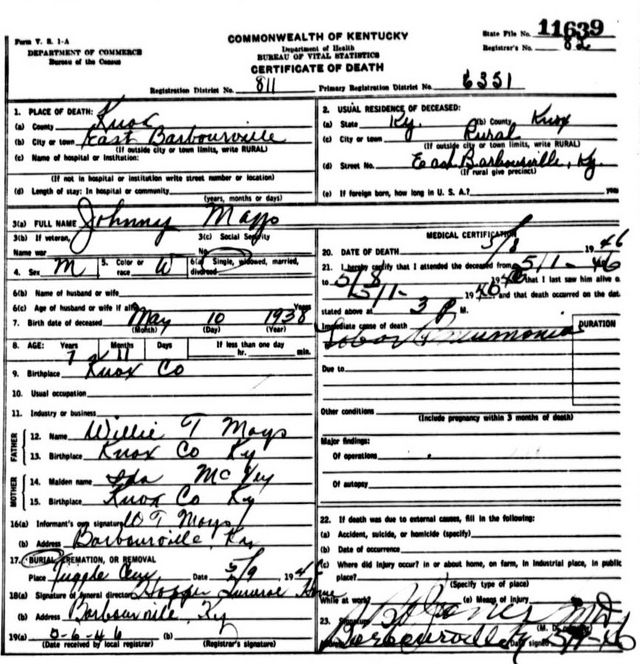 Form V. S. 1-A
DEPARTMENT OF COMMERCE
Bureau of the Census
COMMONWEALTH OF KENTUCKY
Department of Health
BUREAU OF VITAL STATISTICS
CERTIFICATE OF DEATH
State File No. 11639
Registrar's No. 82
Registration District No. 811
Primary Registration District No. 6351
1. PLACE OF DEATH:
(a) County Knox
(b) City or town East Barbourville
(If outside city or town limits, write RURAL)
(c) Name of hospital or institution:
(If not in hospital or institution write street number or location)
(d) Length of stay: In hospital or community
(years, months or days)
2. USUAL RESIDENCE OF DECEASED:
(a) State Ky. (b) County Knox
(c) City or town Rural
(If outside city or town limits, write RURAL)
(d) Street No. East Barbourville, Ky.
(If rural give precinct)
(e) If foreign born, how long in U. S. A.? years
3(a) FULL NAME Johnny Mays
3(b) If veteran, 3(c) Social Security
Name war No.
4. Sex M 5. Color or race W 6(a) Single, widowed, married, divorced
6(b) Name of husband or wife
6(c) Age of husband or wife if alive Years
7. Birth date of deceased May 10 1938
(Month) (Day) (Year)
8. AGE: Years Months Days If less than one day
7 11 hr. min.
9. Birthplace Knox Co
10. Usual occupation
11. Industry or business
FATHER
12. Name Willie T Mays
13. Birthplace Knox Co Ky
MOTHER
14. Maiden name Ida McVey
15. Birthplace Knox Co Ky
16(a) Informant's own signature W T Mays
(b) Address Barbourville, Ky
17. BURIAL, CREMATION, OR REMOVAL
Place Tuggle Cem Date 5/9 194
18(a) Signature of funeral director Hopper Funeral Home
(b) Address Barbourville, Ky
19(a) -6-46 (b)
(Date received by local registrar) (Registrar's signature)
MEDICAL CERTIFICATION
20. DATE OF DEATH 5/8 1946
21. I hereby certify that I attended the deceased from 5/1- 46
to 5/8 1946 that I last saw him alive o
5/1- 1946 and that death occurred on the dat
stated above at 3 P M.
Immediate cause of death DURATION
Lobar Pneumonia
Due to
Other conditions
(Include pregnancy within 3 months of death)
Major findings:
Of operations
Of autopsy
22. If death was due to external causes, fill in the following:
(a) Accident, suicide, or homicide (specify)
(b) Date of occurrence
(c) Where did injury occur? in or about home, on farm, in industrial place, in public
place?
(Specify type of place)
While at work? (e) Means of injury
23. Signature Jones MD
Barbourville Ky Date signed